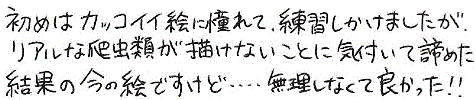 初めはカッコイイ絵に憧れて、練習しかけましたが、
リアルな爬虫類が描けないことに気付いて諦めた
結果の今の絵ですけど‥‥無理しなくて良かった!!